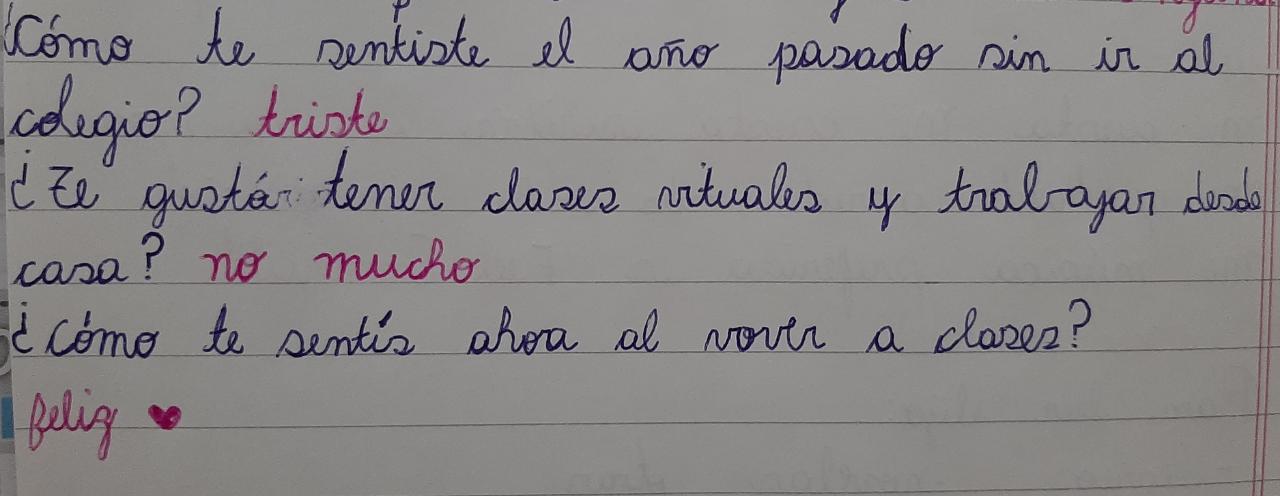 ¿Cómo te sentiste el año pasado sin ir al
colegio? triste
¿Te gustár tener clases vituales y trabajar desde
casa? no mucho
¿Cómo te sentís ahora al vover a clases?
feliz ♥